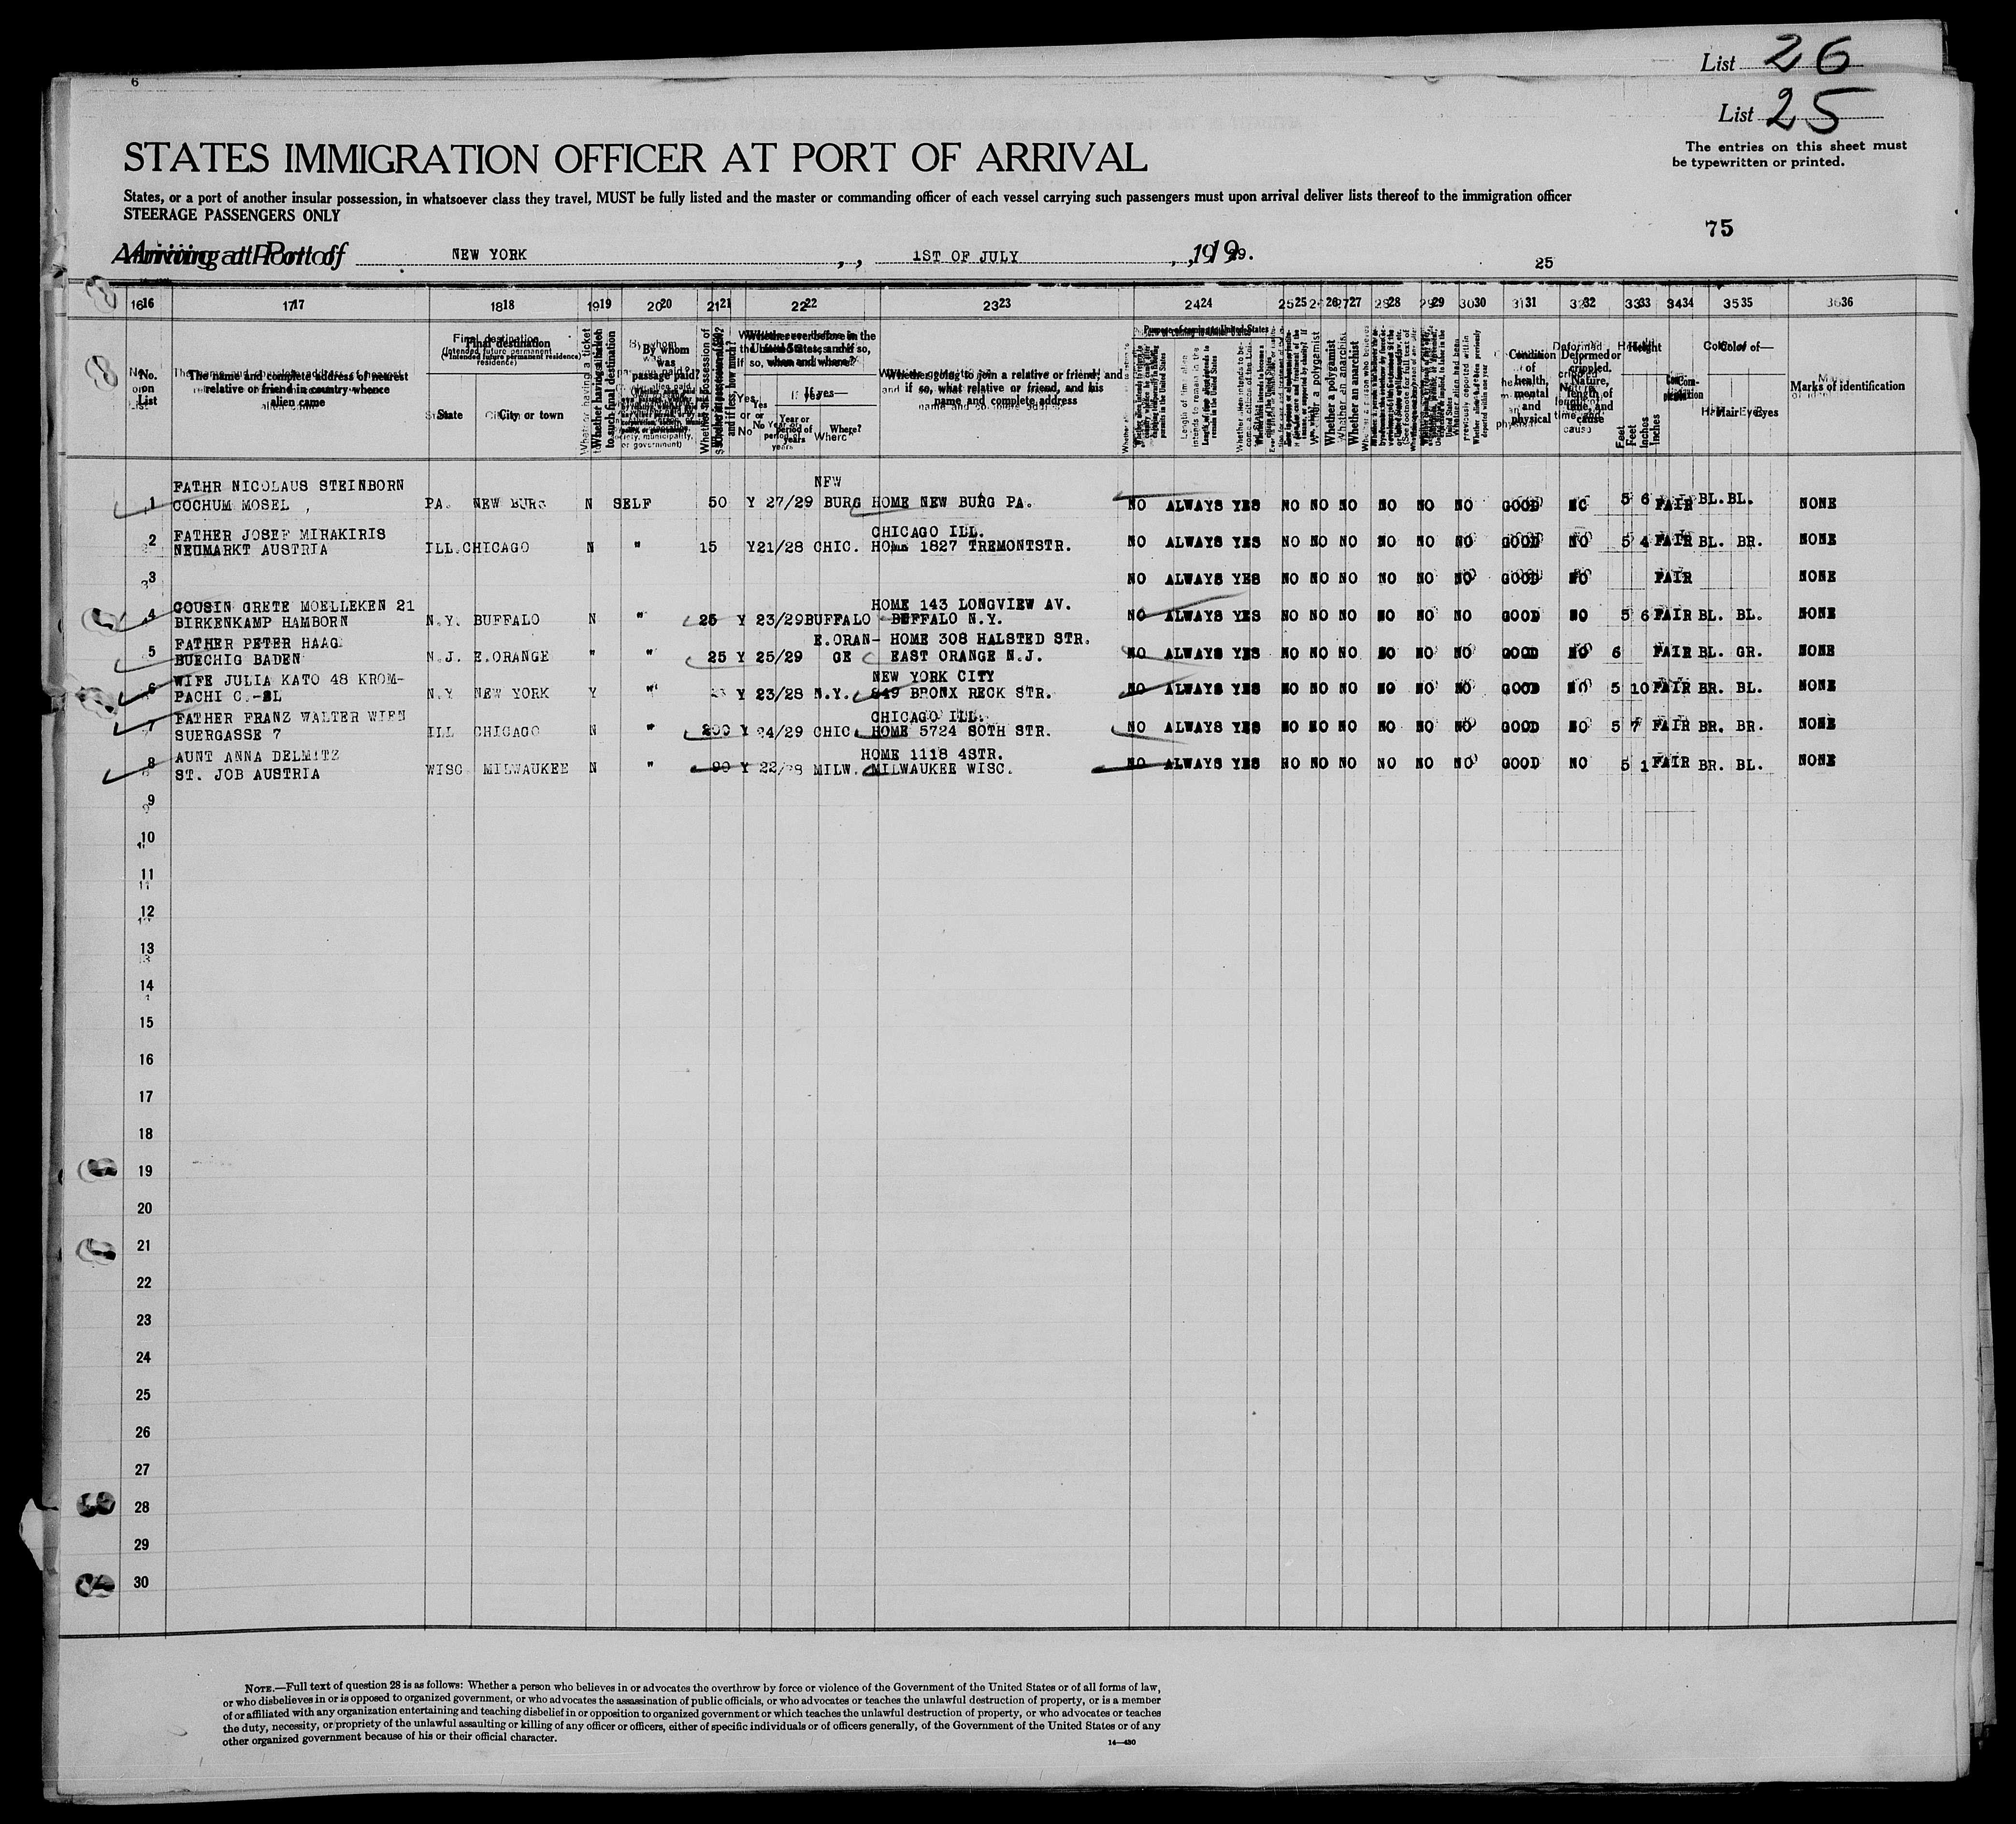 List 26
List 25
6
STATES IMMIGRATION OFFICER AT PORT OF ARRIVAL
The entries on this sheet must
be typewritten or printed.
States, or a port of another insular possession, in whatsoever class they travel, MUST be fully listed and the master or commanding officer of each vessel carrying such passengers must upon arrival deliver lists thereof to the immigration officer
STEERAGE PASSENGERS ONLY
75
Arriving at Port of NEW YORK, 1ST OF JULY, 1929.
25
16 17 18 19 20 21 22 23 24 25 26 27 28 29 30 31 32 33 34 35 36
No. on List
The name and complete address of nearest relative or friend in country whence alien came
Final destination
(Intended future permanent residence)
State City or town
Whether having a ticket to such final destination
By whom was passage paid?
Whether ever before in the United States; and if so, when and where?
Yes or No
If yes—
Year or period of years
Where?
Whether going to join a relative or friend; and if so, what relative or friend, and his name and complete address
Purpose of coming to United States
Whether a polygamist
Whether an anarchist
Condition of health, mental and physical
Deformed or crippled. Nature, length of time, and cause
Height
Feet Inches
Complexion
Color of—
Hair Eyes
Marks of identification
NEW
FATHR NICOLAUS STEINBORN
1 COCHUM MOSEL, PA. NEW BURG N SELF 50 Y 27/29 BURG HOME NEW BURG PA. NO ALWAYS YES NO NO NO NO NO NO GOOD NO 5 6 FAIR BL. BL. NONE
FATHER JOSEF MIRAKIRIS CHICAGO ILL.
2 NEUMARKT AUSTRIA ILL. CHICAGO N " 15 Y 21/28 CHIC. 1827 TREMONTSTR. NO ALWAYS YES NO NO NO NO NO NO GOOD NO 5 4 FAIR BL. BR. NONE
3 NO ALWAYS YES NO NO NO NO NO NO GOOD NO FAIR NONE
COUSIN GRETE MOELLEKEN 21 HOME 143 LONGVIEW AV.
4 BIRKENKAMP HAMBORN N.Y. BUFFALO N " 25 Y 23/29 BUFFALO BUFFALO N.Y. NO ALWAYS YES NO NO NO NO NO NO GOOD NO 5 6 FAIR BL. BL. NONE
FATHER PETER HAAG E.ORAN- HOME 308 HALSTED STR.
5 BUECHIG BADEN N.J. E.ORANGE " " 25 Y 25/29 GE EAST ORANGE N.J. NO ALWAYS YES NO NO NO NO NO NO GOOD NO 6 FAIR BL. GR. NONE
WIFE JULIA KATO 48 KROM- NEW YORK CITY
6 PACHI N.Y NEW YORK Y " Y 23/28 N.Y. 849 BRONX RECK STR. NO ALWAYS YES NO NO NO NO NO NO GOOD NO 5 10 FAIR BR. BL. NONE
FATHER FRANZ WALTER WIEN CHICAGO ILL.
7 SUERGASSE 7 ILL CHICAGO N " 200 Y 24/29 CHIC. HOME 5724 SOTH STR. NO ALWAYS YES NO NO NO NO NO NO GOOD NO 5 7 FAIR BR. BR. NONE
AUNT ANNA DELMITZ HOME 1118 4STR.
8 ST. JOB AUSTRIA WISC MILWAUKEE N " 90 Y 22/28 MILW. MILWAUKEE WISC. NO ALWAYS YES NO NO NO NO NO NO GOOD NO 5 1 FAIR BR. BL. NONE
9
10
11
12
13
14
15
16
17
18
19
20
21
22
23
24
25
26
27
28
29
30
NOTE.—Full text of question 28 is as follows: Whether a person who believes in or advocates the overthrow by force or violence of the Government of the United States or of all forms of law,
or who disbelieves in or is opposed to organized government, or who advocates the assassination of public officials, or who advocates or teaches the unlawful destruction of property, or is a member
of or affiliated with any organization entertaining and teaching disbelief in or opposition to organized government or which teaches the unlawful destruction of property, or who advocates or teaches
the duty, necessity, or propriety of the unlawful assaulting or killing of any officer or officers, either of specific individuals or of officers generally, of the Government of the United States or of any
other organized government because of his or their official character.
14—430